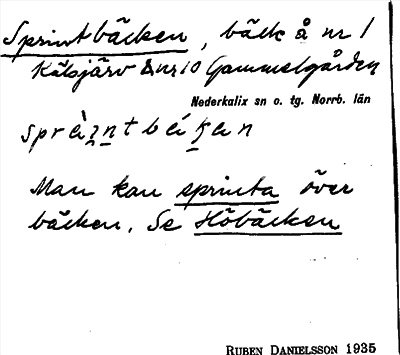 Sprintbäcken, bäck å nr 1
Kälsjärv & nr 10 Gammelgården
Nederkalix sn o. tg. Norrb. län
Man kan sprinta över
bäcken. Se Höbäcken
RUBEN DANIELSSON 1935